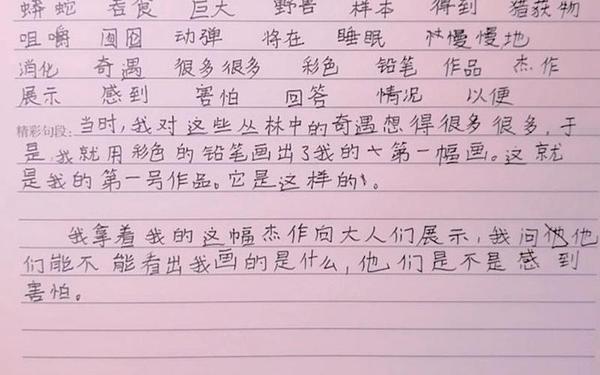 蟒蛇 吞食 巨大 野兽 样本 得到 猎获物
咀嚼 囫囵 动弹 将在 睡眠 慢慢地
消化 奇遇 很多很多 彩色 铅笔 作品 杰作
展示 感到 害怕 回答 情况 以便
精彩句段：当时，我对这些丛林中的奇遇想得很多很多，于
是，我就用彩色的铅笔画出了我的第一幅画。这就
是我的第一号作品。它是这样的。
我拿着我的这幅杰作向大人们展示，我问他他
们能不能看出我画的是什么，他们是不是感到
害怕。